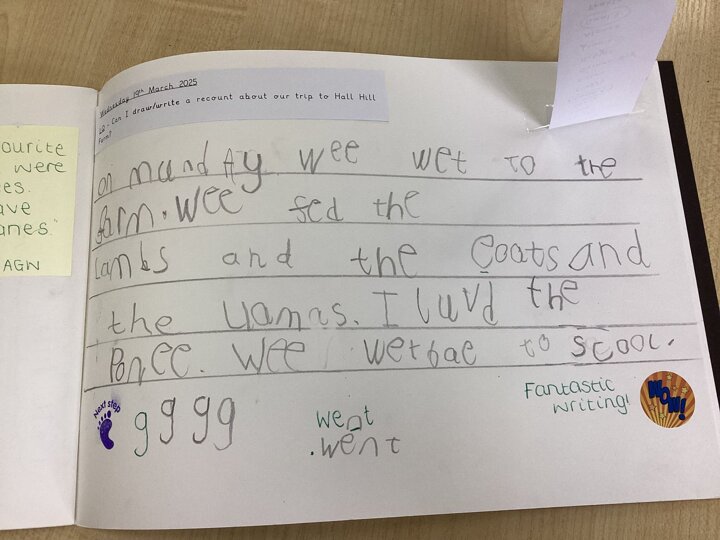 ourite
were
es.
ave
anes."
AGW
Wednesday 19th March 2025
LQ - Can I draw/write a recount about our trip to Hall Hill
Farm?
on mundAy wee wet to the
farm. wee fed the
lambs and the goats and
the yamas. I luvd the
Ponee. wee wetbac to scool.
Next step
g g g g
went
.went
Fantastic
writing!
WOW!